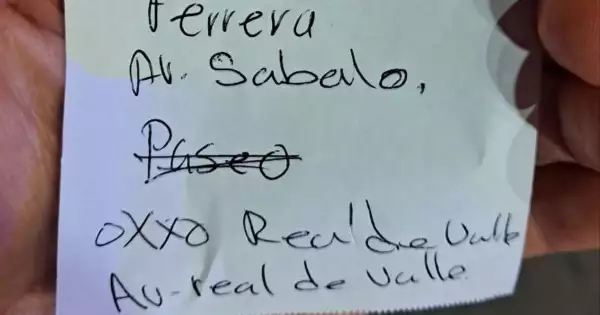 Ferrera
Av. Sabalo,
Paseo
oXXO Real de Valle
Av-real de valle